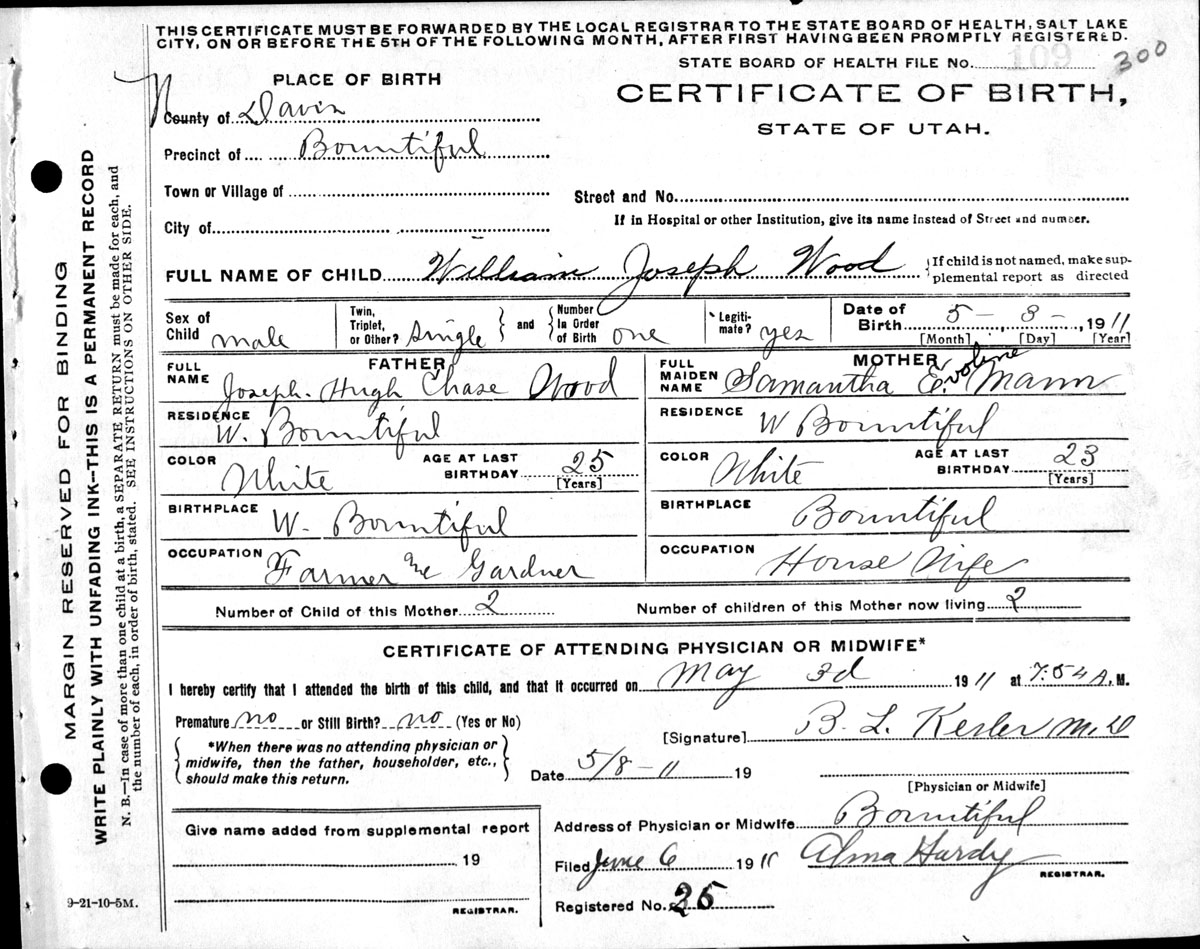 THIS CERTIFICATE MUST BE FORWARDED BY THE LOCAL REGISTRAR TO THE STATE BOARD OF HEALTH, SALT LAKE
CITY, ON OR BEFORE THE 5TH OF THE FOLLOWING MONTH, AFTER FIRST HAVING BEEN PROMPTLY REGISTERED.
STATE BOARD OF HEALTH FILE No. 109 300
PLACE OF BIRTH
CERTIFICATE OF BIRTH,
STATE OF UTAH.
County of Davis
Precinct of Bountiful
Town or Village of
Street and No.
City of
If in Hospital or other Institution, give its name instead of Street and number.
FULL NAME OF CHILD William Joseph Wood
If child is not named, make sup-
plemental report as directed
Sex of Child male
Twin, Triplet, or Other? single and Number In Order of Birth one
Legiti-mate? yes
Date of Birth 5 - 3 - , 1911
[Month] [Day] [Year]
FATHER
FULL NAME Joseph. Hugh Chase Wood
RESIDENCE W. Bountiful
COLOR White AGE AT LAST BIRTHDAY 25 [Years]
BIRTHPLACE W. Bountiful
OCCUPATION Farmer & Gardner
MOTHER
FULL MAIDEN NAME Samantha Evolene Mann
RESIDENCE W Bountiful
COLOR White AGE AT LAST BIRTHDAY 23 [Years]
BIRTHPLACE Bountiful
OCCUPATION House Wife
Number of Child of this Mother 2 Number of children of this Mother now living 2
CERTIFICATE OF ATTENDING PHYSICIAN OR MIDWIFE*
I hereby certify that I attended the birth of this child, and that it occurred on May 3d 1911 at 7:54 A. M.
Premature no or Still Birth? no (Yes or No)
[Signature] B. L. Kesler M.D
*When there was no attending physician or
midwife, then the father, householder, etc.,
should make this return.
Date 5/8-11 19
[Physician or Midwife]
Give name added from supplemental report
19
REGISTRAR.
Address of Physician or Midwife Bountiful
Filed June 6 1911 Alma Hardy
REGISTRAR.
Registered No. 25
9-21-10-5M.
MARGIN RESERVED FOR BINDING
WRITE PLAINLY WITH UNFADING INK--THIS IS A PERMANENT RECORD
N. B.—In case of more than one child at a birth, a SEPARATE RETURN must be made for each, and
the number of each, in order of birth, stated. SEE INSTRUCTIONS ON OTHER SIDE.